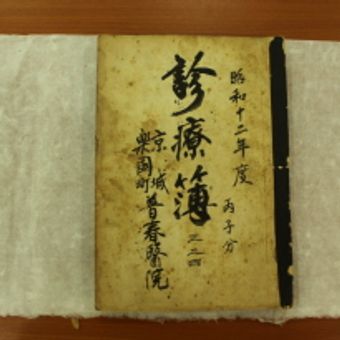 昭和十二年度 丙子分
診療簿
京城
樂園町
普春醫院